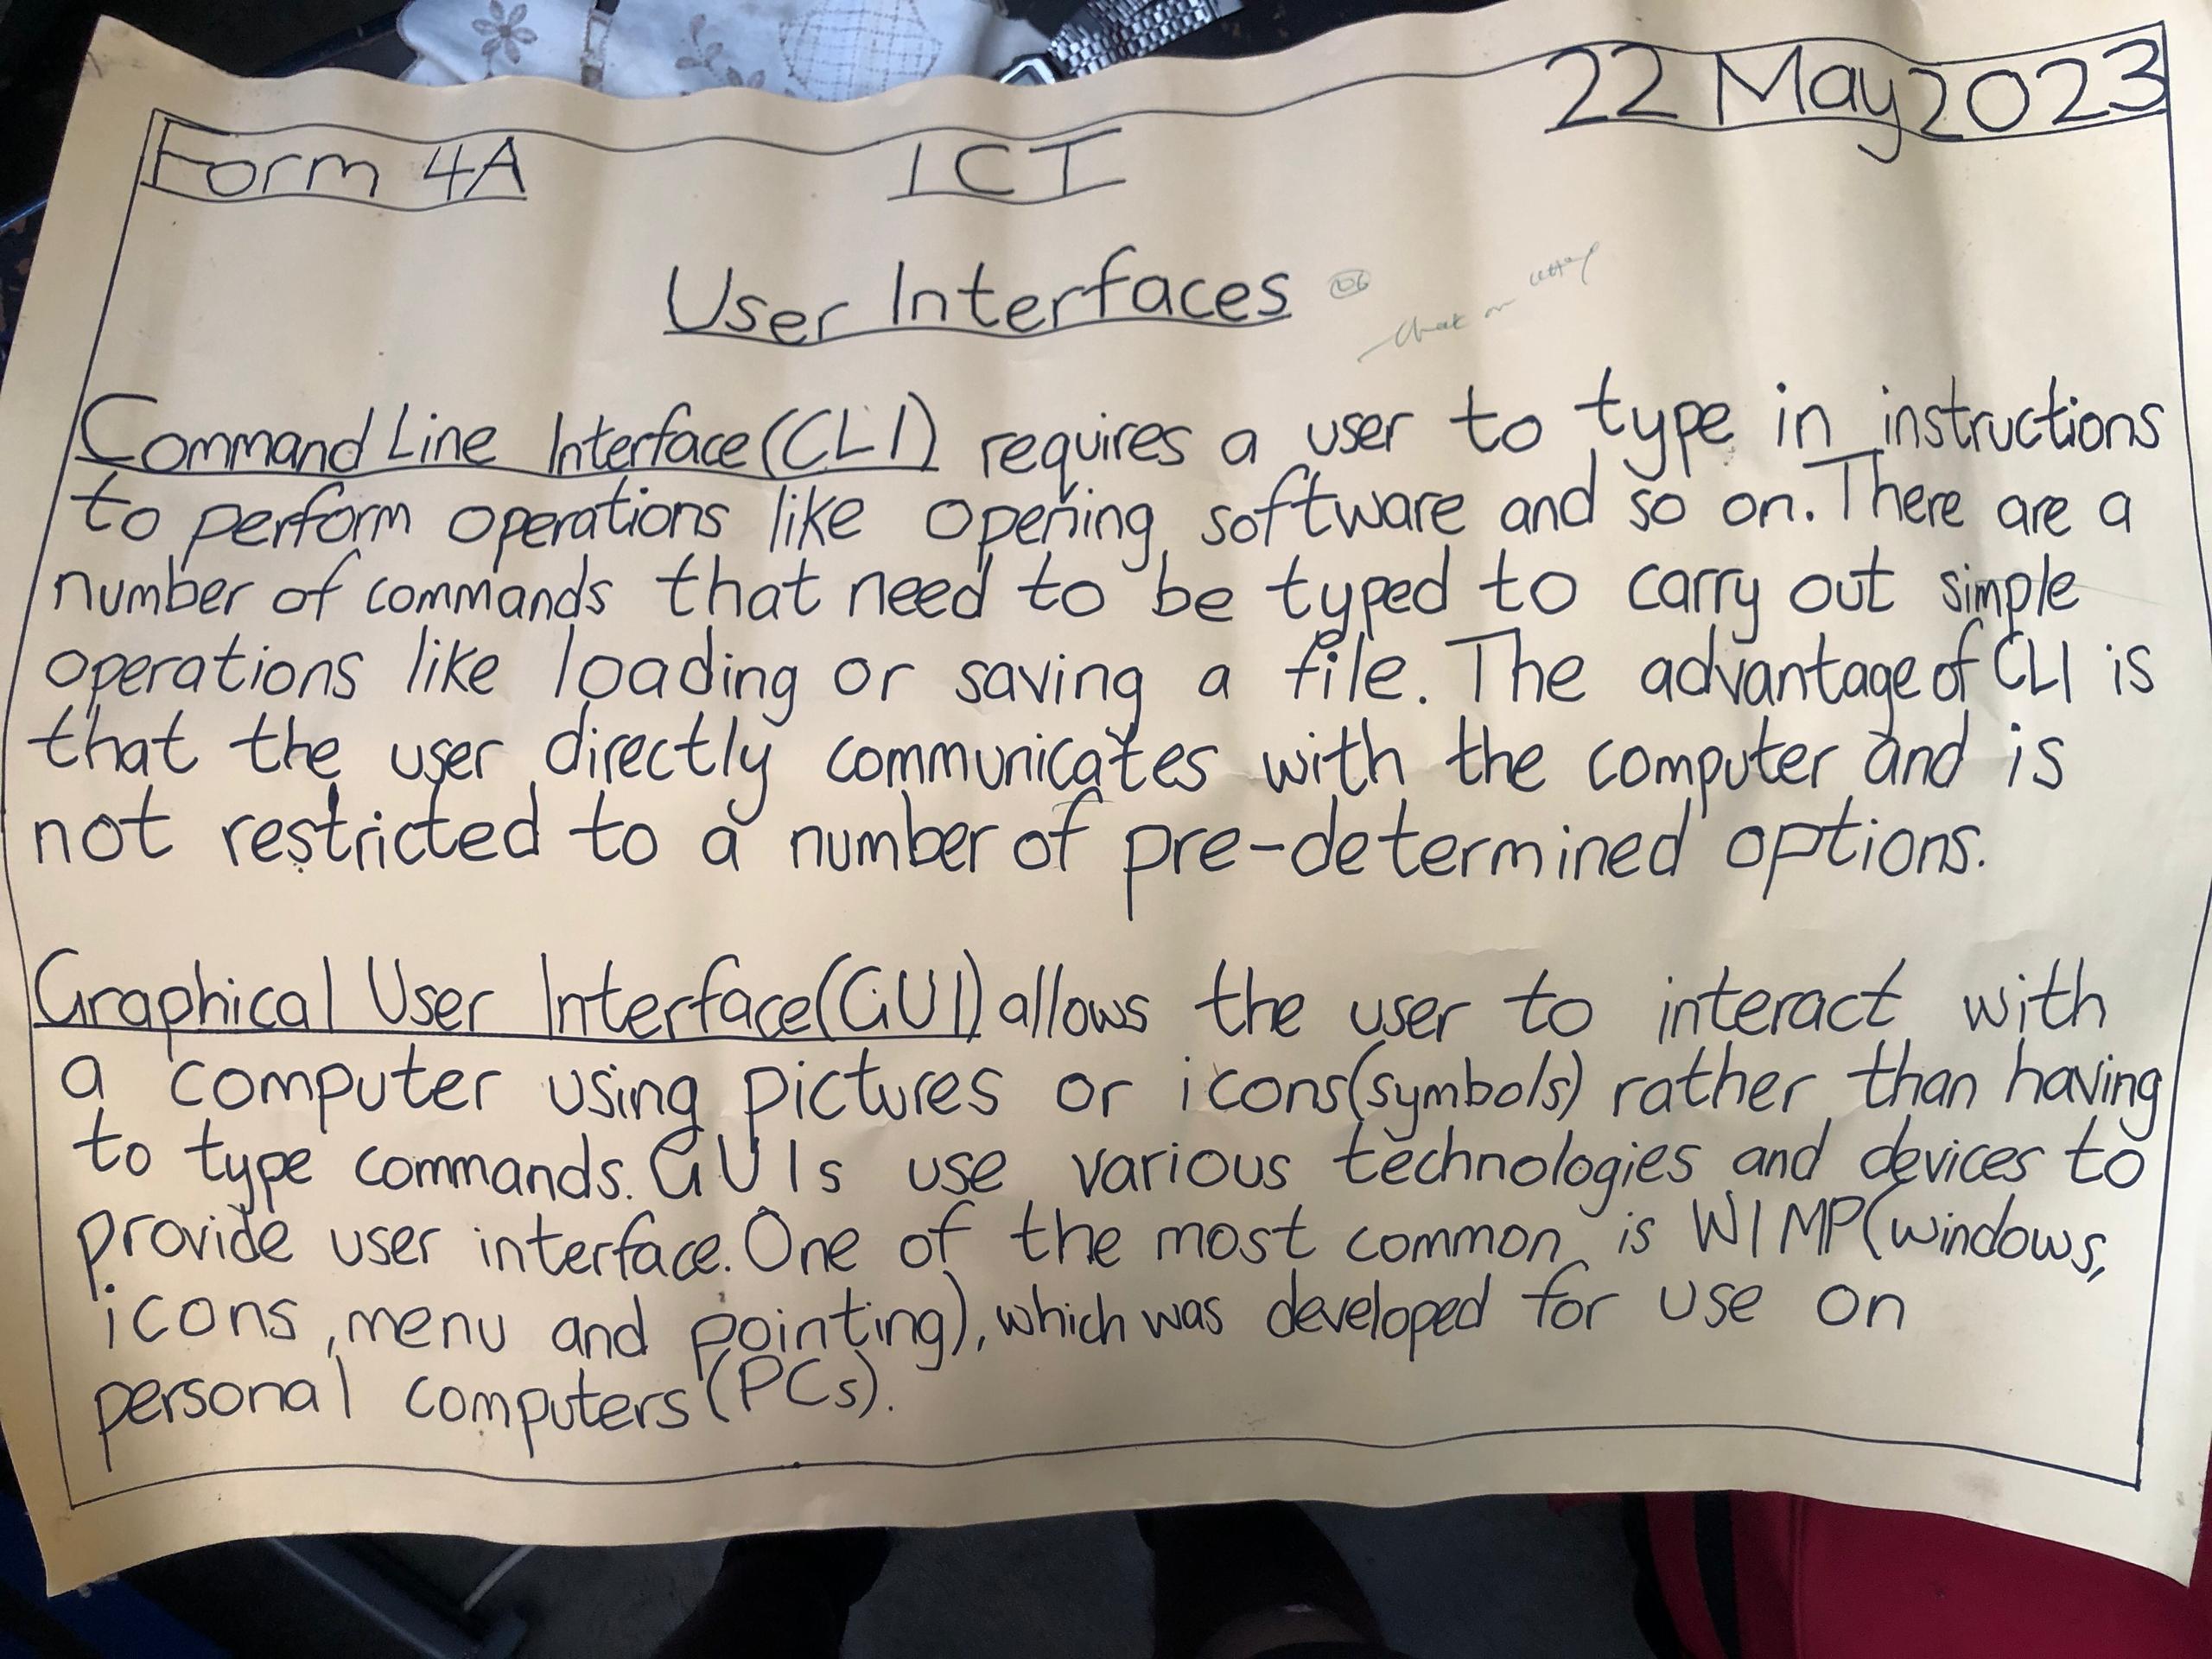 Form 4A ICT 22 May 2023
User Interfaces
Command Line Interface(CLI) requires a user to type in instructions
to perform operations like opening software and so on. There are a
number of commands that need to be typed to carry out simple
operations like loading or saving a file. The advantage of CLI is
that the user directly communicates with the computer and is
not restricted to a number of pre-determined options.
Graphical User Interface(GUI) allows the user to interact with
a computer using pictures or icons(symbols) rather than having
to type commands. GUIs use various technologies and devices to
provide user interface. One of the most common is WIMP(windows,
icons, menu and pointing), which was developed for use on
personal computers (PCs).